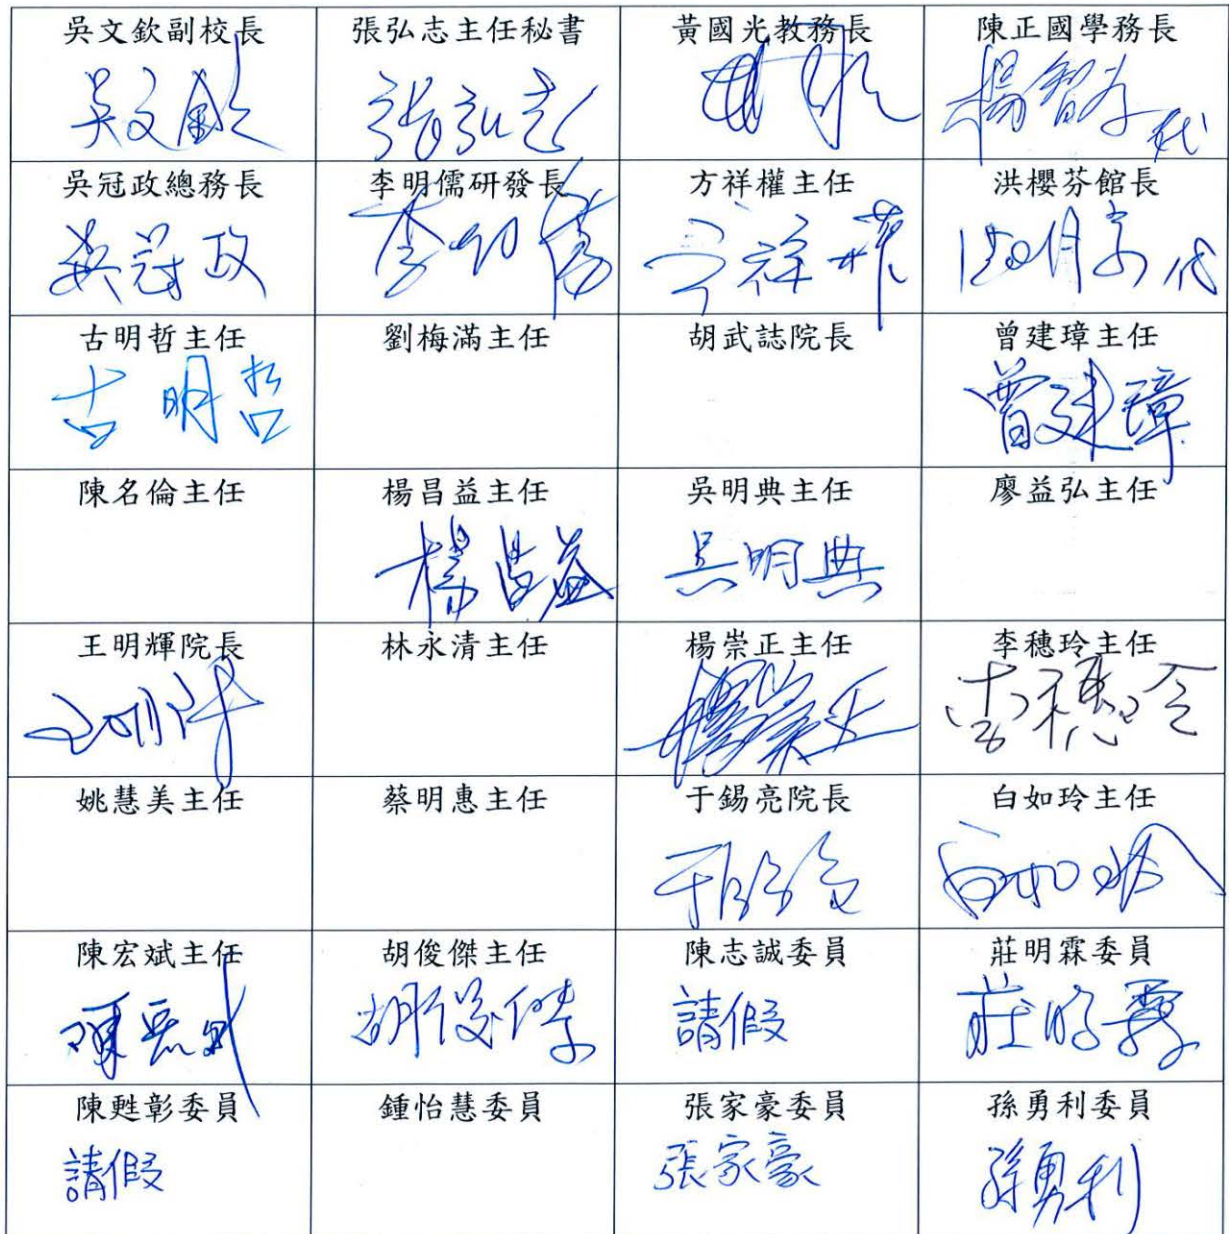 吳文欽副校長
張弘志主任秘書
黃國光教務長
陳正國學務長
吳文欽
張弘志
楊智 代
吳冠政總務長
李明儒研發長
方祥權主任
洪櫻芬館長
吳冠政
李明儒
方祥權
代
古明哲主任
劉梅滿主任
胡武誌院長
曾建璋主任
古明哲
曾建璋
陳名倫主任
楊昌益主任
吳明典主任
廖益弘主任
楊昌益
吳明典
王明輝院長
林永清主任
楊崇正主任
李穗玲主任
王明輝
楊崇正
李穗玲
姚慧美主任
蔡明惠主任
于錫亮院長
白如玲主任
于錫亮
白如玲
陳宏斌主任
胡俊傑主任
陳志誠委員
莊明霖委員
陳宏斌
胡俊傑
請假
莊明霖
陳甦彰委員
鍾怡慧委員
張家豪委員
孫勇利委員
請假
張家豪
孫勇利